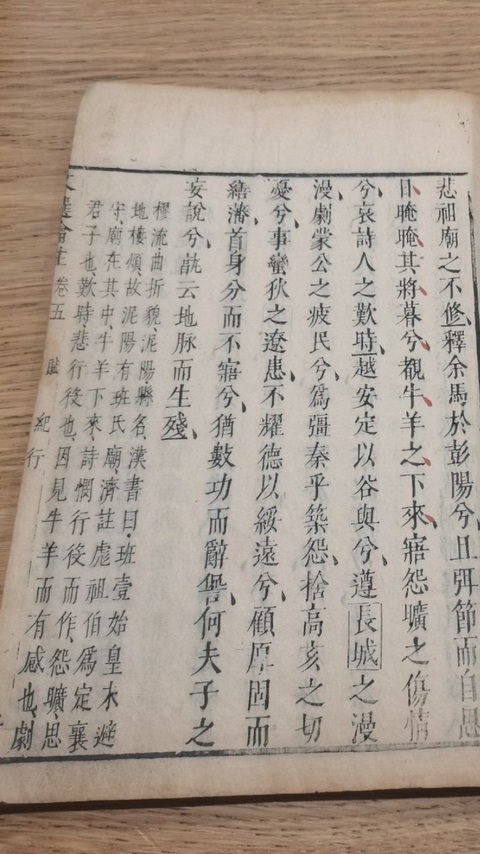 悲祖廟之不修、釋余馬於彭陽兮、且弭節而自思
日晻晻其將暮兮、覩牛羊之下來、寤怨曠之傷情
兮、哀詩人之歎時、越安定以容與兮、遵長城之漫
漫、劇蒙公之疲民兮、爲彊秦乎築怨、捨高亥之切
憂兮、事蠻狄之遼患、不耀德以綏遠兮、顧厚固而
繕藩、首身分而不寤兮、猶數功而辭諐、何夫子之
妄說兮、孰云地脉而生殘、
樛流曲折貌、泥陽縣名、漢書曰、班壹始皇末避
地樓煩、故泥陽有班氏廟、濟註彪祖伯爲定襄
守、廟在其中、牛羊下來、詩憫行役而作、怨曠、思
君子也、歎時、悲行役也、因見牛羊而有感也、劇
文選會註 卷五 賦 紀行